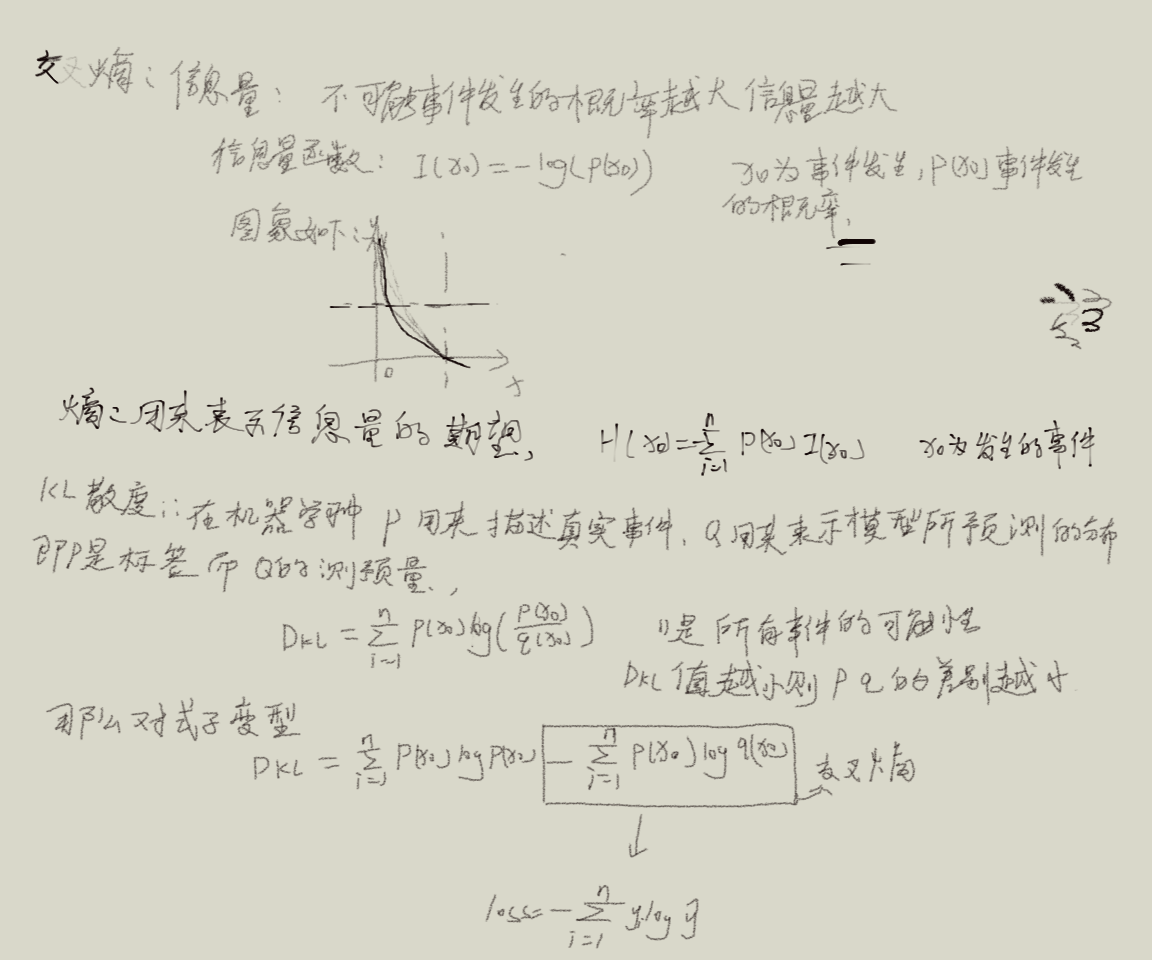 交叉熵：信息量： 不可能事件发生的概率越大信息量越大
信息量函数： I(x₀)=-log(P(x₀)) x₀为事件发生,P(x₀)事件发生
的概率,
图象如下:
0 1 x
熵：用来表示信息量的期望, H(x₀)=-∑ⁿᵢ₌₁ P(x₀) I(x₀) x₀为发生的事件
KL散度：在机器学种 P 用来描述真实事件. Q用来表示模型所预测的分布
即P是标签 而 Q的测预量.,
DKL = ∑ⁿᵢ₌₁ P(x₀) log(P(x₀)/q(x₀)) n是所有事件的可能性
DKL值越小则 P q 的差别越小
那么对式子变型
DKL = ∑ⁿᵢ₌₁ P(x₀) log P(x₀) - ∑ⁿᵢ₌₁ P(x₀) log q(x₀) 交叉熵
loss=-∑ⁿᵢ₌₁ yᵢ log ŷ